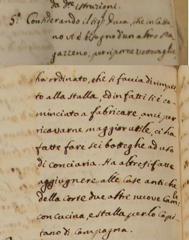 da distruzioni.
5.° Considerando il sig.r Duca, che in Latta
no vi è bisogno d'un altro Ma
gazzeno, per riporre vettovaglie
ha ordinato, che si faccia dirimpet
to alla stalla. Ed infatti si è co
minciato a fabricare, anzi per
ricavarne maggior utile, ci ha
fatte fare sei botteghe ad uso
di conciaria. Ha altresì fatte
aggiugnere alle case antiche
della corte due altre nuove came
con cucina, e stalla per lo Capi
tano di Campagna.